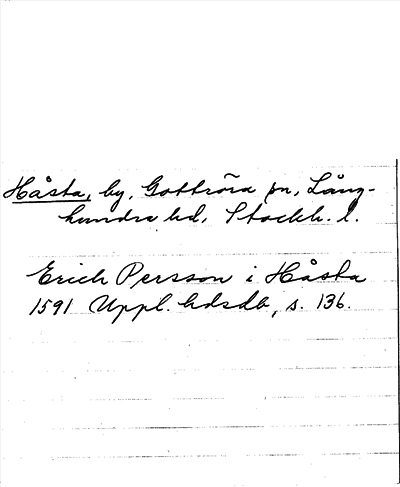 Håsta, by, Gottröra sn, Lång-
hundra hd, Stockh. l.
Erich Persson i Håsta
1591 Uppl. hdsdb, s. 136.